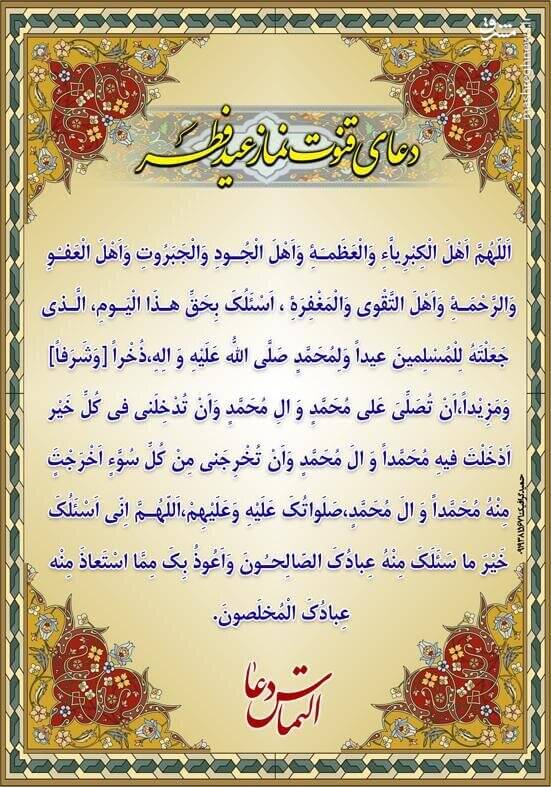 مشرق
mashreghnews.ir
دعای قنوت نماز عید فطر
اَللّهُمَّ اَهْلَ الْکِبْرِیاَّءِ وَالْعَظَمَةِ وَاَهْلَ الْجُودِ وَالْجَبَرُوتِ وَاَهْلَ الْعَفْوِ
وَالرَّحْمَةِ وَاَهْلَ التَّقْوی وَالْمَغْفِرَةِ ، اَسْئَلُکَ بِحَقِّ هذَا الْیَومِ، الَّذی
جَعَلْتَهُ لِلْمُسْلِمینَ عیداً وَلِمُحَمَّدٍ صَلَّی اللهُ عَلَیْهِ وَ الِهِ،ذُخْراً [وَشَرَفاً]
وَمَزِیْداً،اَنْ تُصَلِّیَ عَلی مُحَمَّدٍ وَ الِ مُحَمَّدٍ وَاَنْ تُدْخِلَنی فی کُلِّ خَیْرٍ
اَدْخَلْتَ فیهِ مُحَمَّداً وَ الَ مُحَمَّدٍ وَاَنْ تُخْرِجَنی مِنْ کُلِّ سُوَّءٍ اَخْرَجْتَ
مِنْهُ مُحَمَّداً وَ الَ مُحَمَّدٍ،صَلَواتُکَ عَلَیْهِ وَعَلَیْهِمْ،اَللّهُمَّ اِنّی اَسْئَلُکَ
خَیْرَ ما سَئَلَکَ مِنْهُ عِبادُکَ الصّالِحُونَ وَاَعُوذُ بِکَ مِمَّا اسْتَعاذَ مِنْهُ
عِبادُکَ الْمُخلَصونَ.
التماس دعا